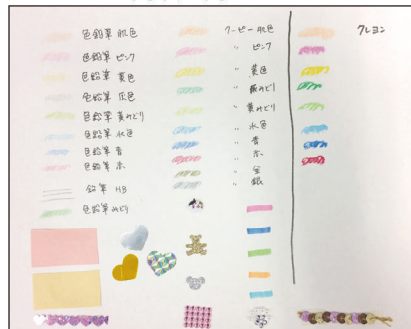 色鉛筆 肌色
色鉛筆 ピンク
色鉛筆 黄色
色鉛筆 灰色
色鉛筆 黄みどり
色鉛筆 水色
色鉛筆 青
色鉛筆 赤
鉛筆 HB
色鉛筆 みどり
クーピー 肌色
〃 ピンク
〃 黄色
〃 緑みどり
〃 黄みどり
〃 水色
〃 青
〃 赤
〃 金
〃 銀
クレヨン